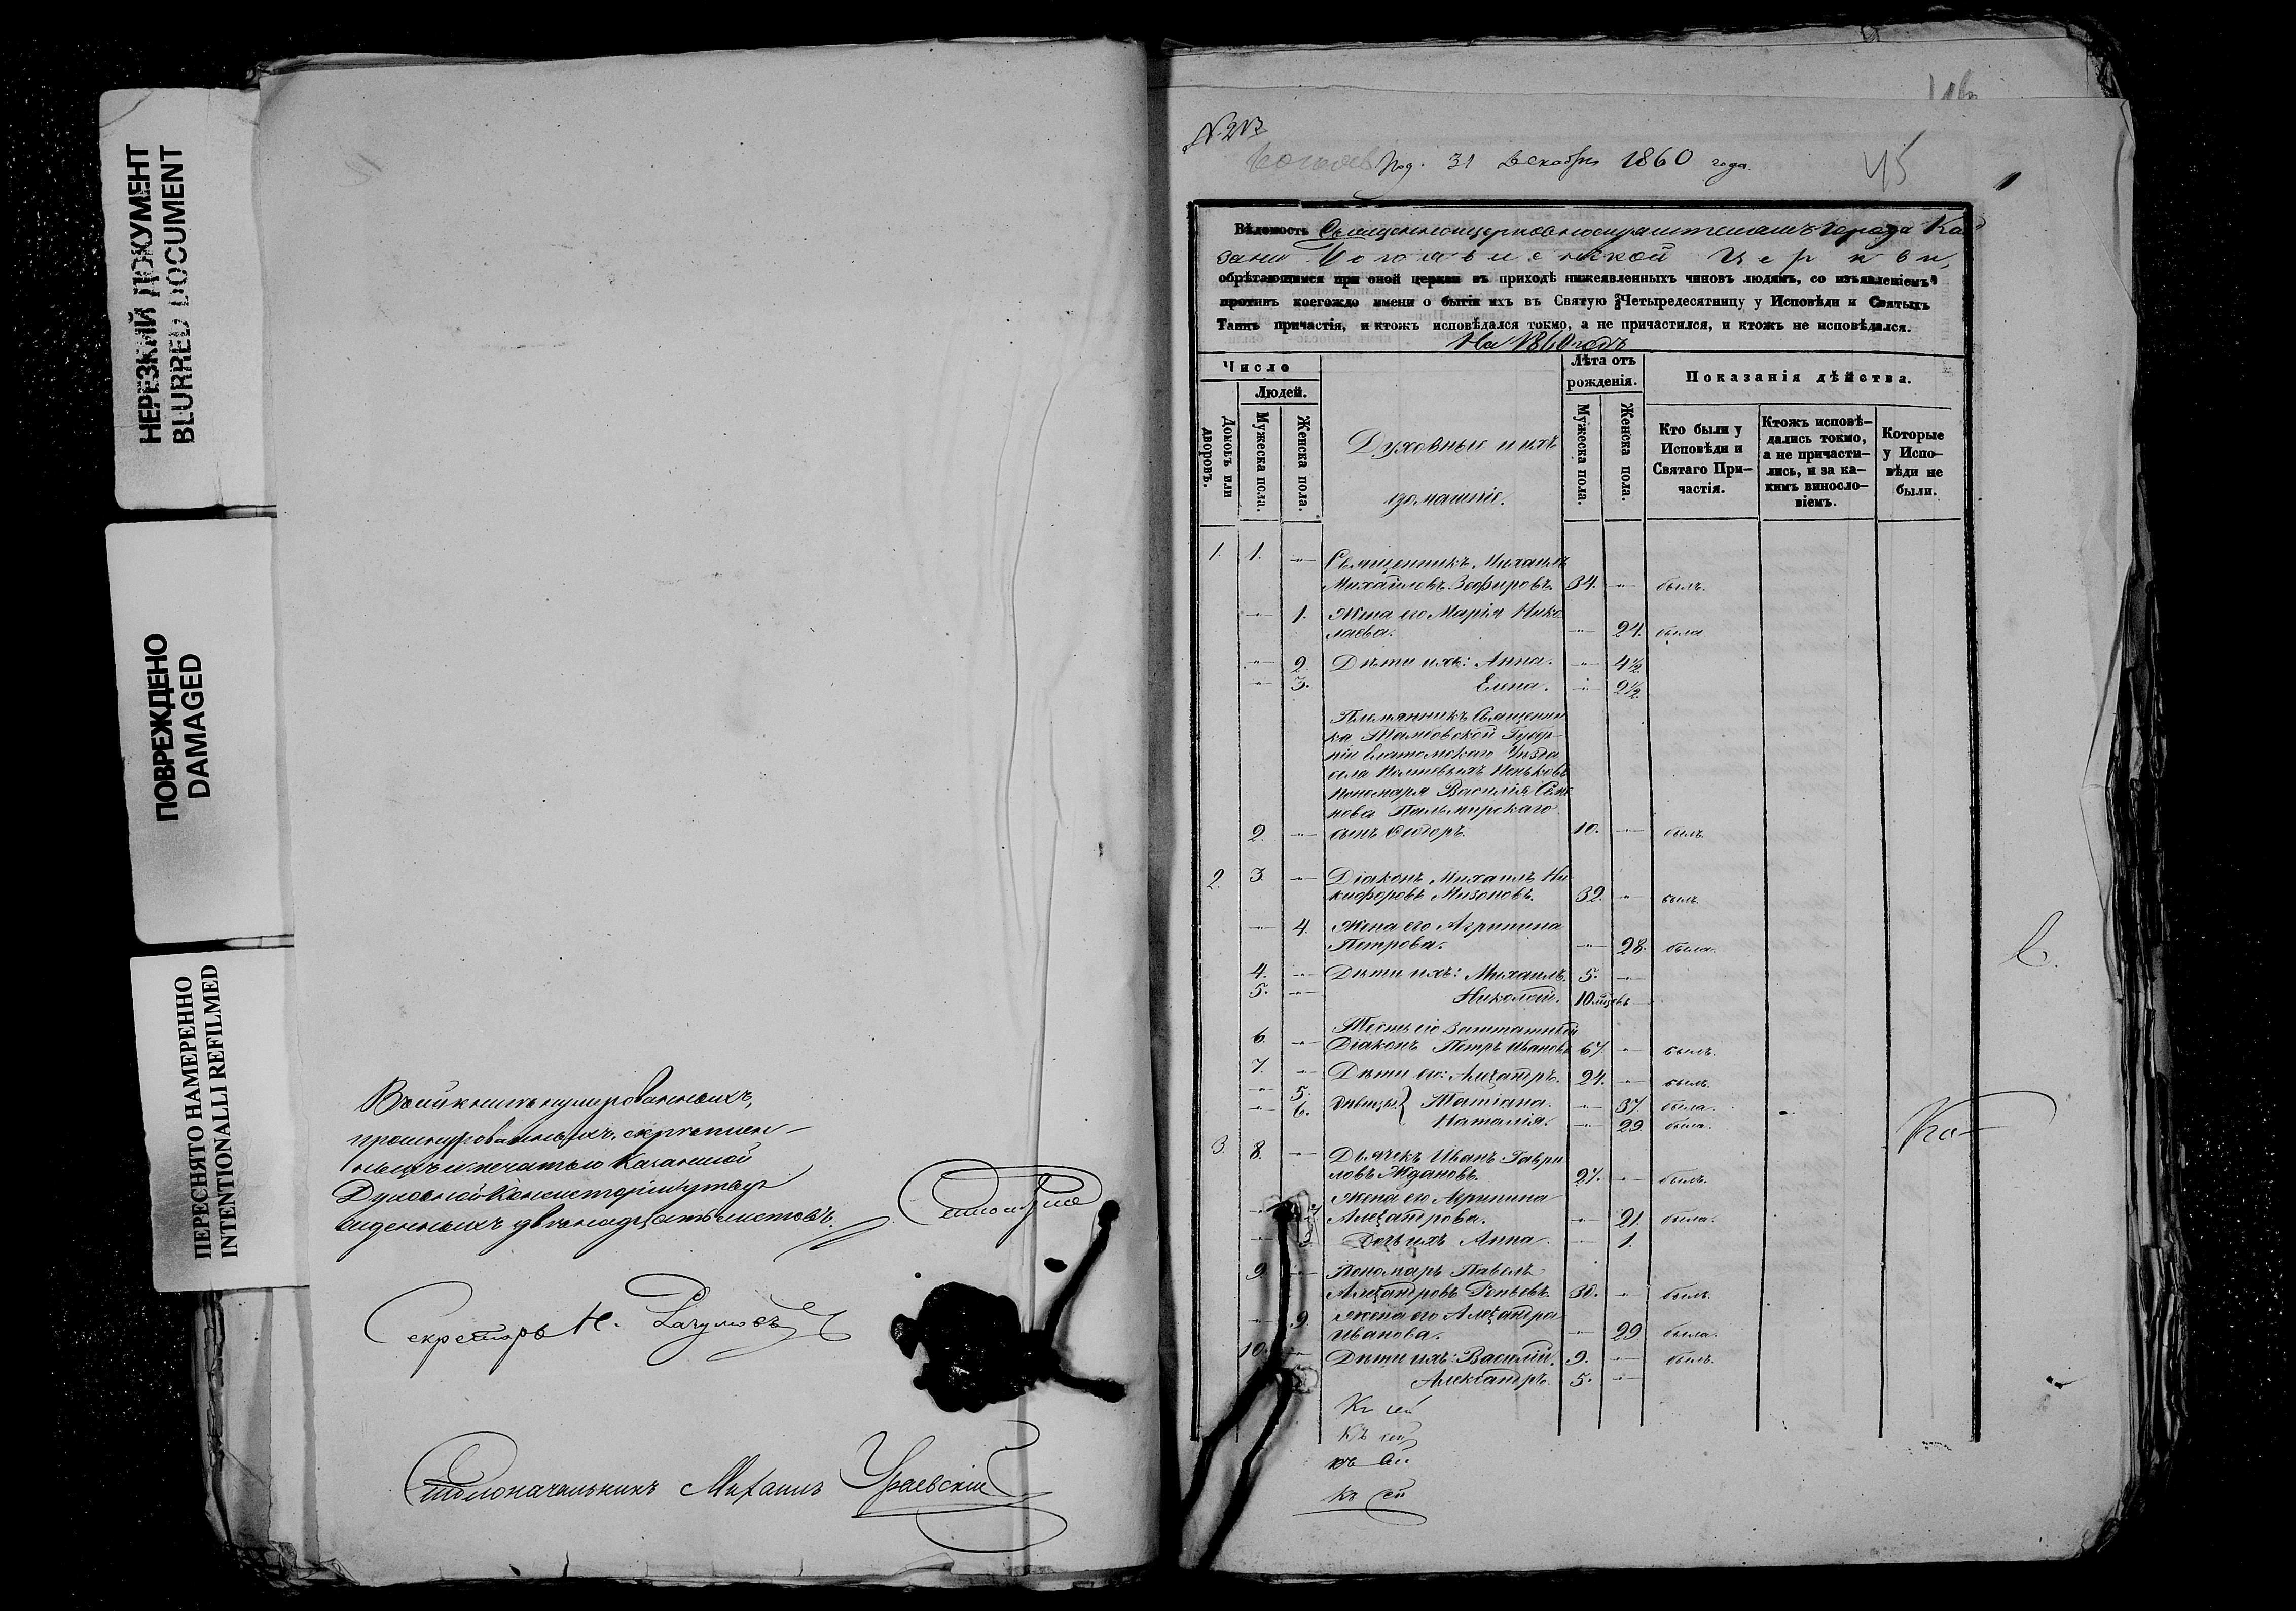 НЕРЕЗКИЙ ДОКУМЕНТ
BLURRED DOCUMENT
ПОВРЕЖДЕНО
DAMAGED
ПЕРЕСНЯТО НАМЕРЕННО
INTENTIONALLI REFILMED
Въ сей книгѣ нумерованныхъ,
прошнурованныхъ, скрѣплен-
ныхъ и печатью Казанской
Духовной Консисторіи утвер
жденныхъ двѣнадцать листовъ.
Секретарь Н. Разумовъ
Столоначальникъ Михаилъ Ураевскій
Под. 31 Декабря 1860 года.
45
Вѣдомость Священноцерковнослужителямъ города Ка
зани Богоявленской Церкви,
обрѣтающимся при оной церкви въ приходѣ нижеявленныхъ чиновъ людямъ, со изъявленіемъ
противъ коегождо имени о бытіи ихъ въ Святую Четыредесятницу у Исповѣди и Святыхъ
Таинъ причастія, и ктожъ исповѣдался токмо, а не причастился, и ктожъ не исповѣдался.
На 1860 годъ
Число
Людей.
Домовъ или дворовъ.
Мужеска пола.
Женска пола.
Духовные и ихъ
домашніе.
Лѣта отъ
рожденія.
Мужеска пола.
Женска пола.
Показанія дѣйства.
Кто были у
Исповѣди и
Святаго При-
частія.
Ктожъ исповѣ-
дались токмо,
а не причасти-
лись, и за ка-
кимъ винос­ло-
віемъ.
Которые
у Испо-
вѣди не
были.
1. 1. -"- Священникъ Михаилъ
Михайловъ Зефировъ. 34. -"- былъ.
-"- 1. Жена его Марія Нико
лаева. -"- 24. была
-"- 2. Дѣти ихъ: Анна. -"- 4½
-"- 3. Елена. -"- 2½
Племянникъ Священни
ка Тамбовской Губер-
ніи Елатомскаго Уѣзда
села
Пономаря Василія Семе
нова Пальмирскаго
2. -"- сынъ Ѳеодоръ. 10. -"- былъ.
2. 3. -"- Діаконъ Михаилъ Ни
кифоровъ Мизоновъ. 32. -"- былъ.
-"- 4. Жена его Агрипина
Петрова. -"- 28. была.
4. -"- Дѣти ихъ: Михаилъ. 5. -"-
5. -"- Николай. 10 мѣсяцевъ
6. -"- Тесть его Заштатный
Діаконъ Петръ Ивановъ 67. -"- былъ.
7. -"- Дѣти его: Александръ. 24. -"- былъ.
-"- 5. Дѣвицы: Татіана. -"- 37. была.
-"- 6. Наталія. -"- 29. была.
3. 8. -"- Дьячекъ Иванъ Гаври
ловъ Ждановъ. 27. -"- былъ.
Жена его Агрипина
-"- 7 Александрова. -"- 21. была.
-"- Дочь ихъ Анна. -"- 1.
9. -"- Пономарь Павелъ
Александровъ 30. -"- былъ.
-"- 9. Жена его Александра
Иванова. -"- 29 была.
10. -"- Дѣти ихъ: Василій. 9. -"- былъ.
Александръ. 5. -"-
Къ сей
Къ сей
къ сей
Къ сей